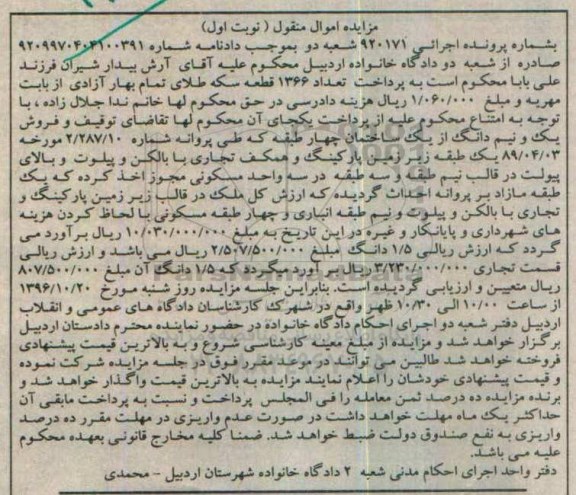 مزایده اموال منقول ( نوبت اول)
بشماره پرونده اجرائی ۹۲۰۱۷۱ شعبه دو بموجب دادنامه شماره ۹۲۰۹۹۷۰۴۰۴۱۰۰۳۹۱
صادره از شعبه دو دادگاه خانواده اردبیل محکوم علیه آقای آرش بیدار شیران فرزند
علی بابا محکوم است به پرداخت تعداد ۱۳۶۶ قطعه سکه طلای تمام بهار آزادی از بابت
مهریه و مبلغ ۱/۰۶۰/۰۰۰ ریال هزینه دادرسی در حق محکوم لها خانم ندا جلال زاده ، با
توجه به امتناع محکوم علیه از پرداخت یکجای آن محکوم لها تقاضای توقیف و فروش
یک و نیم دانگ از یک ساختمان چهار طبقه که طی پروانه شماره ۲/۲۸۷/۱۰ مورخه
۸۹/۰۴/۰۳ یک طبقه زیر زمین پارکینگ و همکف تجاری با بالکن و پیلوت و بالای
پیولت در قالب نیم طبقه و سه طبقه در سه واحد مسکونی مجوز اخذ کرده که یک
طبقه مازاد بر پروانه احداث گردیده که ارزش کل ملک در قالب زیر زمین پارکینگ و
تجاری با بالکن و پیلوت و نیم طبقه انباری و چهار طبقه مسکونی با لحاظ کردن هزینه
های شهرداری و پایانکار و غیره در این تاریخ به مبلغ ۱۰/۰۳۰/۰۰۰/۰۰۰ ریال برآورد می
گردد که ارزش ریالی ۱/۵ دانگ مبلغ ۲/۵۰۷/۵۰۰/۰۰۰ ریال می باشد و ارزش ریالی
قسمت تجاری ۳/۲۳۰/۰۰۰/۰۰۰ ریال بر آورد میگردد که ۱/۵ دانگ آن مبلغ ۸۰۷/۵۰۰/۰۰۰
ریال متعیین و ارزیابی گردیده است. بنابراین جلسه مزایده روز شنبه مورخ ۱۳۹۶/۱۰/۲۰
از ساعت ۱۰/۰۰ الی ۱۰/۳۰ ظهر واقع در شهرک کارشناسان دادگاه های عمومی و انقلاب
اردبیل دفتر شعبه دو اجرای احکام دادگاه خانواده در حضور نماینده محترم دادستان اردبیل
برگزار خواهد شد و مزایده از مبلغ معینه کارشناسی شروع و به بالاترین قیمت پیشنهادی
فروخته خواهد شد طالبین می توانند در موعد مقرر فوق در جلسه مزایده شرکت نموده
و قیمت پیشنهادی خودشان را اعلام نمایند مزایده به بالاترین قیمت واگذار خواهد شد و
برنده مزایده ده درصد ثمن معامله را فی المجلس پرداخت و نسبت به پرداخت مابقی آن
حداکثر یک ماه مهلت خواهد داشت در صورت عدم واریزی در مهلت مقرر ده درصد
واریزی به نفع صندوق دولت ضبط خواهد شد. ضمنا کلیه مخارج قانونی بعهده محکوم
علیه می باشد.
دفتر واحد اجرای احکام مدنی شعبه ۲ دادگاه خانواده شهرستان اردبیل - محمدی